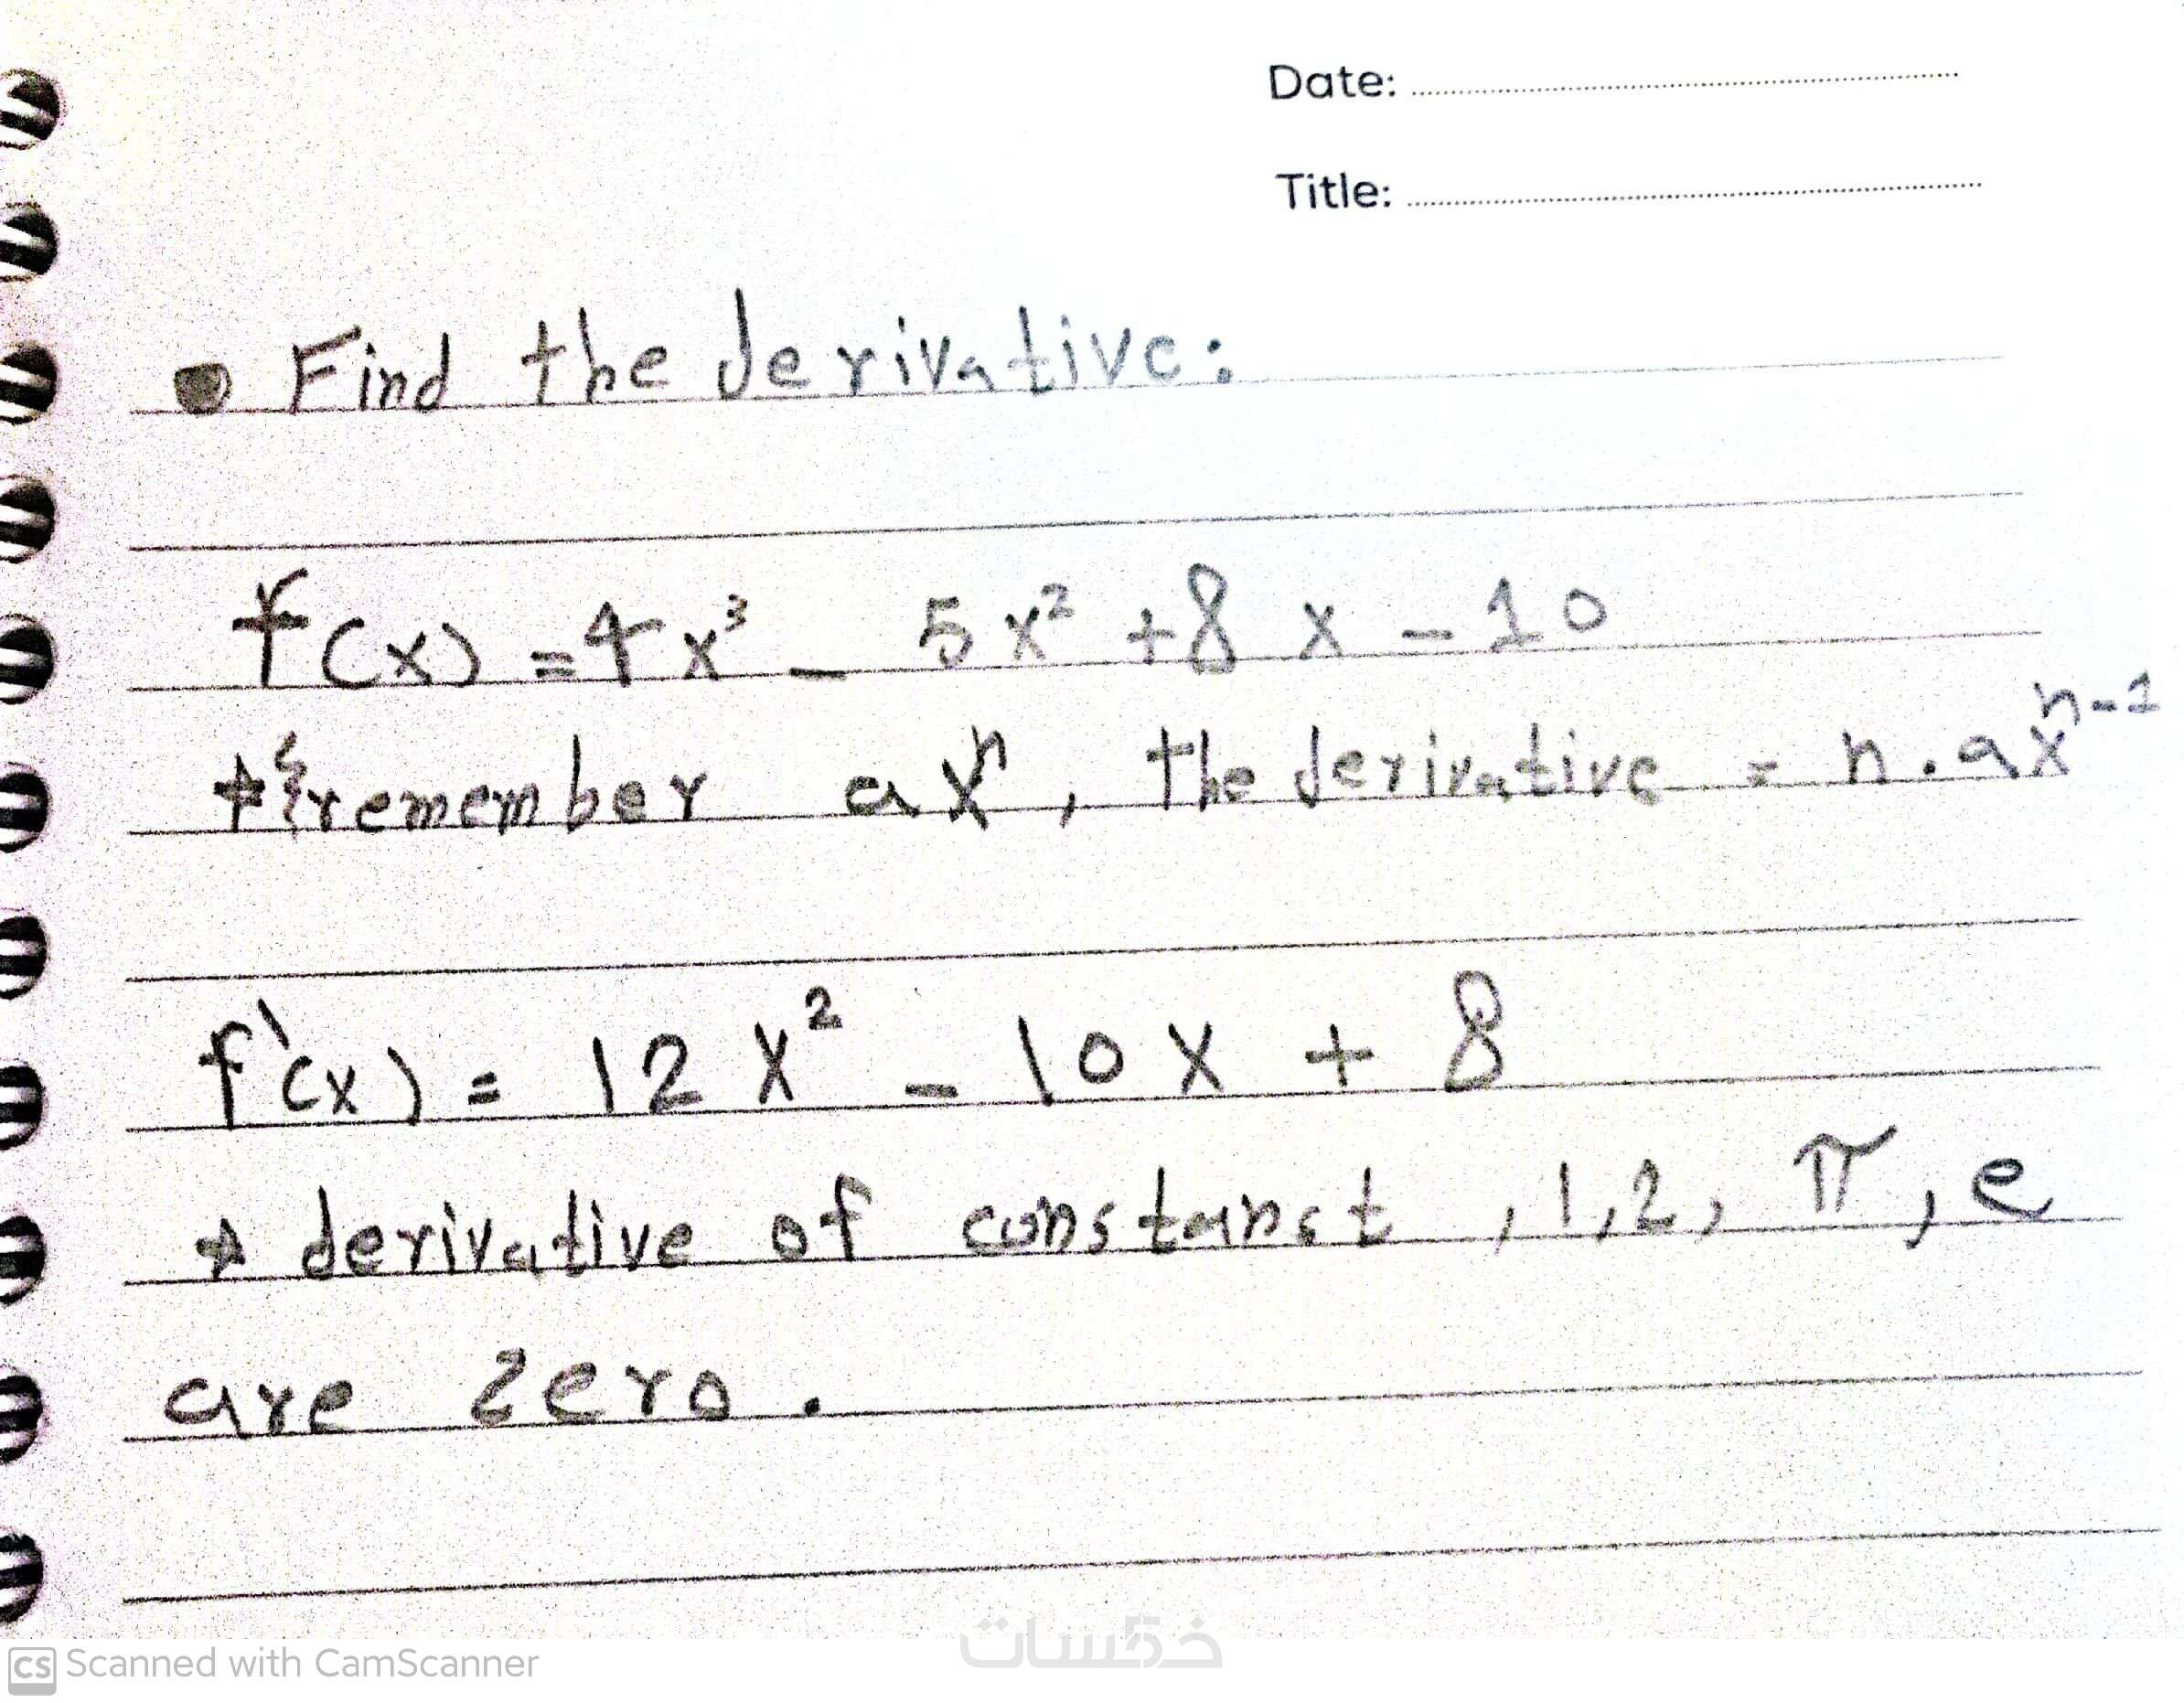 Date:
Title:
Find the derivative:
f(x) = 4x³ - 5x² + 8x - 10
*{remember axⁿ, the derivative = n.axⁿ⁻¹
f'(x) = 12x² - 10x + 8
* derivative of constanst, 1,2, π, e
are zero.
خمسات
CS Scanned with CamScanner